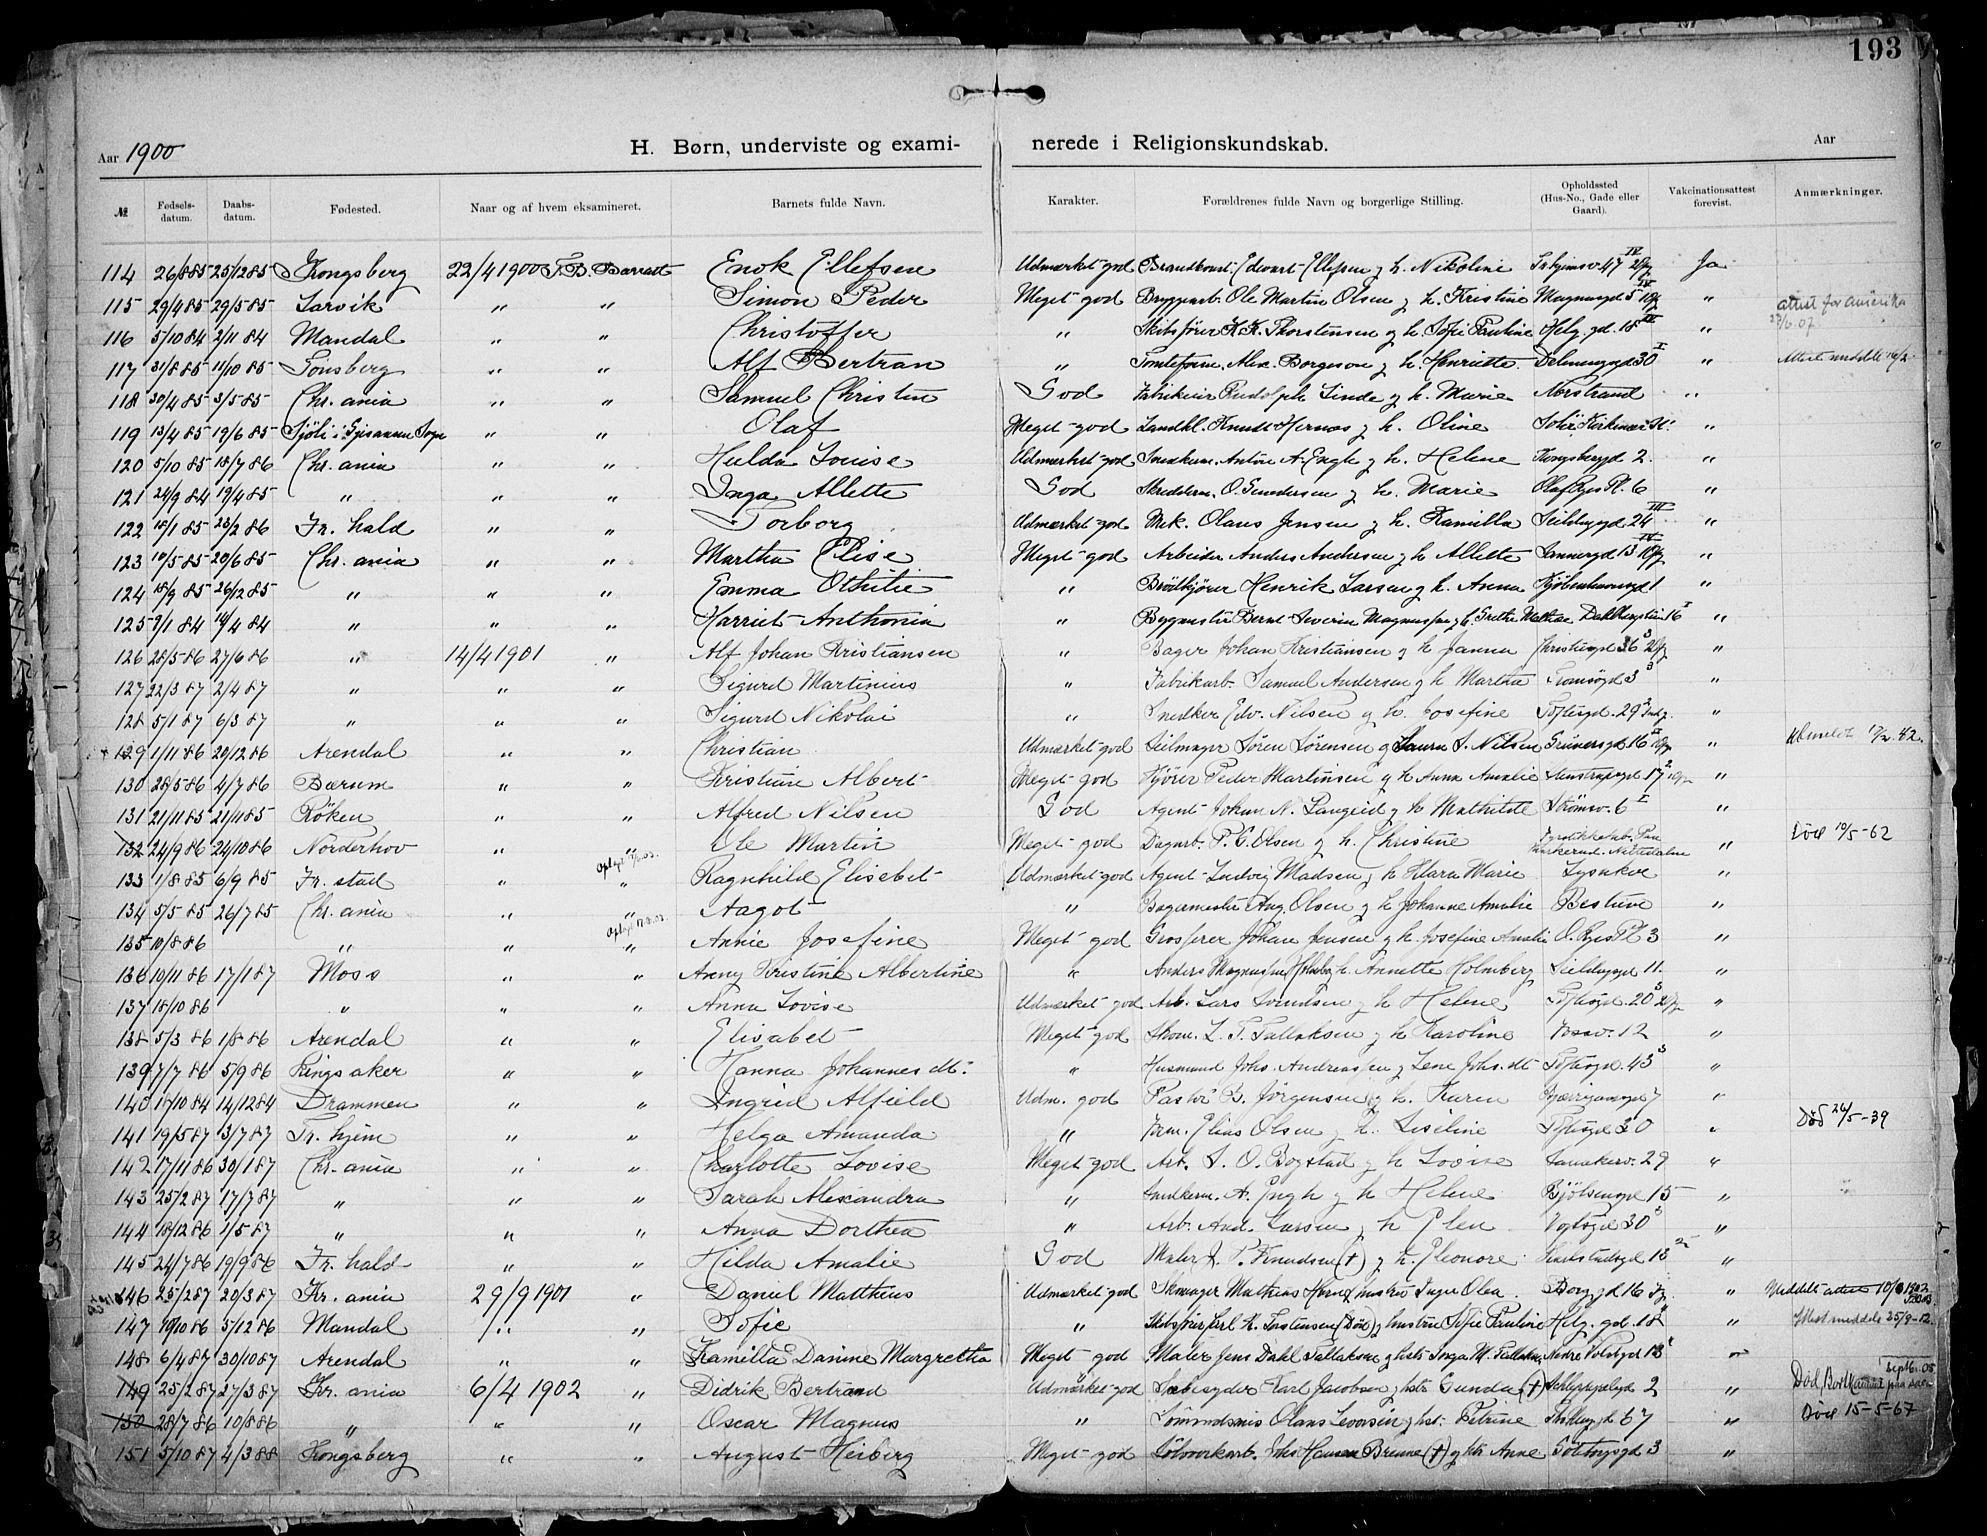 193
Aar 1900 H. Børn, underviste og exami- nerede i Religionskundskab. Aar
№ Fødsels-datum. Daabs-datum. Fødested. Naar og af hvem eksamineret. Barnets fulde Navn. Karakter. Forældrenes fulde Navn og borgerlige Stilling. Opholdssted (Hus-No., Gade eller Gaard). Vakcinationsattest forevist. Anmærkninger.
114 26/8 85 25/12 85 Kongsberg 22/4 1900 T.B. Barratt Enok Ellefsen Udmærket-god Edvart Ellefsen g h. Nikoline 47 IV Ja
115 29/4 85 29/5 85 Larvik " " Simon Peder Meget-god Bryggarb. Ole Martin Olsen g h. Kristine Magnusgd 5 IV " attest for Amerika
116 5/10 84 2/11 84 Mandal " " Christoffer " Skibsfører K.K. Thorstensen g h. Sofie Pauline Helg. gd. 18 III "
117 31/8 85 11/10 85 Tønsberg " " Alf Bertran " Tomteform. Alex. Borgeson g h. Henriette 30 I "
118 30/4 85 3/5 85 Chr. ania " " Samuel Christen God Rudolph Linde g h. Marie Norstrand "
119 13/4 85 19/6 85 " " Olaf Meget-god Landhl. Knudt Hernæs g h. Oline "
120 5/10 85 18/7 86 Chr. ania " " Hulda Louise Udmærket-god Snedkerm. Anton A. Engh g h. Helene Kongsberggd 2. "
121 24/9 84 19/4 85 " " " Inga Allette God Skrædderm. O. Gundersen g h. Marie Olaf Ryes Pl. 6 "
122 18/1 85 23/2 86 Fr. hald " " Torborg Udmærket-god Mek. Olaus Jensen g h. Kamilla Seildugsgd 24 III "
123 10/5 85 20/6 85 Chr. ania " " Martha Elise Meget-god Arbeider Anders Andersen g h Allette Sannergd 13 IV "
124 18/9 85 26/12 85 " " " Emma Othilie " Brødkjører Henrik Larsen g h. Anna Kjøbenhavnsgd 1 "
125 9/1 84 14/4 84 " " " Harriet Anthonia " Bygmester Bernt Severin Magnussen g h. Grethe Mathea Dahl 16 I "
126 28/5 86 27/6 86 " 14/4 1901 " Alf Johan Kristiansen " Bager Johan Kristiansen g h Janna 36 "
127 22/3 87 2/4 87 " " " Sigurd Martinius " Fabrikarb. Samuel Andersen g h Martha Tromsøgd 3 "
128 5/1 87 6/3 87 " " " Sigurd Nikolai " Snedker Edv. Nilsen g h. Josefine Toftesgd. 29 "
129 1/11 86 20/12 86 Arendal " " Christian Udmærket-god Seilmager Søren Sørensen g Laura S. Nilsen Grünersgd 16 "
130 28/5 86 4/7 86 Bærum " " Kristian Albert Meget god Kjører Peder Martinsen g h Anna Amalie 17 "
131 21/11 85 21/11 85 Røken " " Alfred Nilsen God Agent Johan N. Langeid g h Mathilde Strømsv. 6 I "
132 24/9 86 24/10 86 Norderhov " " Ole Martin Meget god Dagarb. P. C. Olsen g h. Christine Nittedalen " Død 10/5-62
133 1/8 85 6/9 85 Fr. stad " " Ragnhild Elisabet Udmærket-god Agent Ludvig Madsen g h Klara Marie Lysaker "
134 5/5 85 26/7 85 Chr. ania " " Aagot " Bagermester Aug. Olsen g h Johanne Amalie Bestum "
135 10/8 86 " " " Annie Josefine Meget god Grosserer Johan Jensen g h. Josefine Amalie O. Ryes Pl 3 "
136 10/11 86 17/1 87 Moss " " Aeny Kristine Albertine " Anders Magnussen Holmberg h. Annette Holmberg Seildugsgd 11. "
137 18/10 86 " " " Anna Lovise Udmærket-god Arb. Lars Svendsen g h Helene Toftesgd. 20 "
138 5/3 86 1/8 86 Arendal " " Elisabet Meget-god Skom. L. T. Tallaksen g h Karoline Vossv. 12 "
139 7/7 86 5/9 86 Ringsaker " " Hanna Johannesdt: " Husmand Johs. Andreassen g Lene Johs.dt Toftesgd. 43 "
140 17/10 84 14/12 84 Drammen " " Ingrid Alfield Udm. god Pastor B. Jørgensen g h. Karen 7 "
141 19/5 87 3/7 87 Tr. hjem " " Helga Amanda " Form. Elias Olsen g h. Liseline Toftesgd 30 " Død 26/5-39
142 17/11 86 30/1 87 Chr. ania " " Charlotte Lovise Meget god Arb. S. O. Bogstad g h Lovise Sannakerv. 29 "
143 25/2 87 17/7 87 " " " Sarah Alexandra " Snedkerm. A. Engh g h Helene Bjølsengd 15 "
144 18/12 86 1/5 87 " " " Anna Dorthea " Arb. And. Larsen g h Elen Vogtsgd 30 "
145 24/7 86 19/9 86 Fr. hald " " Hilda Amalie God Maler J. P. Knudsen (†) g h. Eleonore 13 "
146 25/2 87 20/3 87 Kr. ania 29/9 1901 " Daniel Matthæus Udmærket-god Skomager Mathias Horne g hustru Inger Olea Borg. gd 16 " Meddelt attest 10/ 1902
147 10/10 86 5/12 86 Mandal " " Sofie " Skibsfører Karl K. Torstensen (Død) g hustru Sofie Pauline Helg. gd. 18 " Attest meddelt 25/9-12.
148 6/4 87 30/10 87 Arendal " " Kamilla Danine Margretha Meget god Maler Jens Dahl Tallaksen g hstr Inga M. Tallaksen Nedre Voldgd 13 "
149 25/2 87 27/3 87 Kr. ania 6/4 1902 " Didrik Bertrand Udmærket-god Sæbesyder Karl Jacobsen g hstr Gunda (†) 2 " Død
150 28/7 86 10/8 86 " " " Oscar Magnus " Olaus g hst. Petrine 67 " Død 15-5-67
151 5/10 87 4/3 88 Kongsberg " " August Heiberg Meget-god Johs Hansen Brenne (†) g hst Anne Gøteborggd 3 "